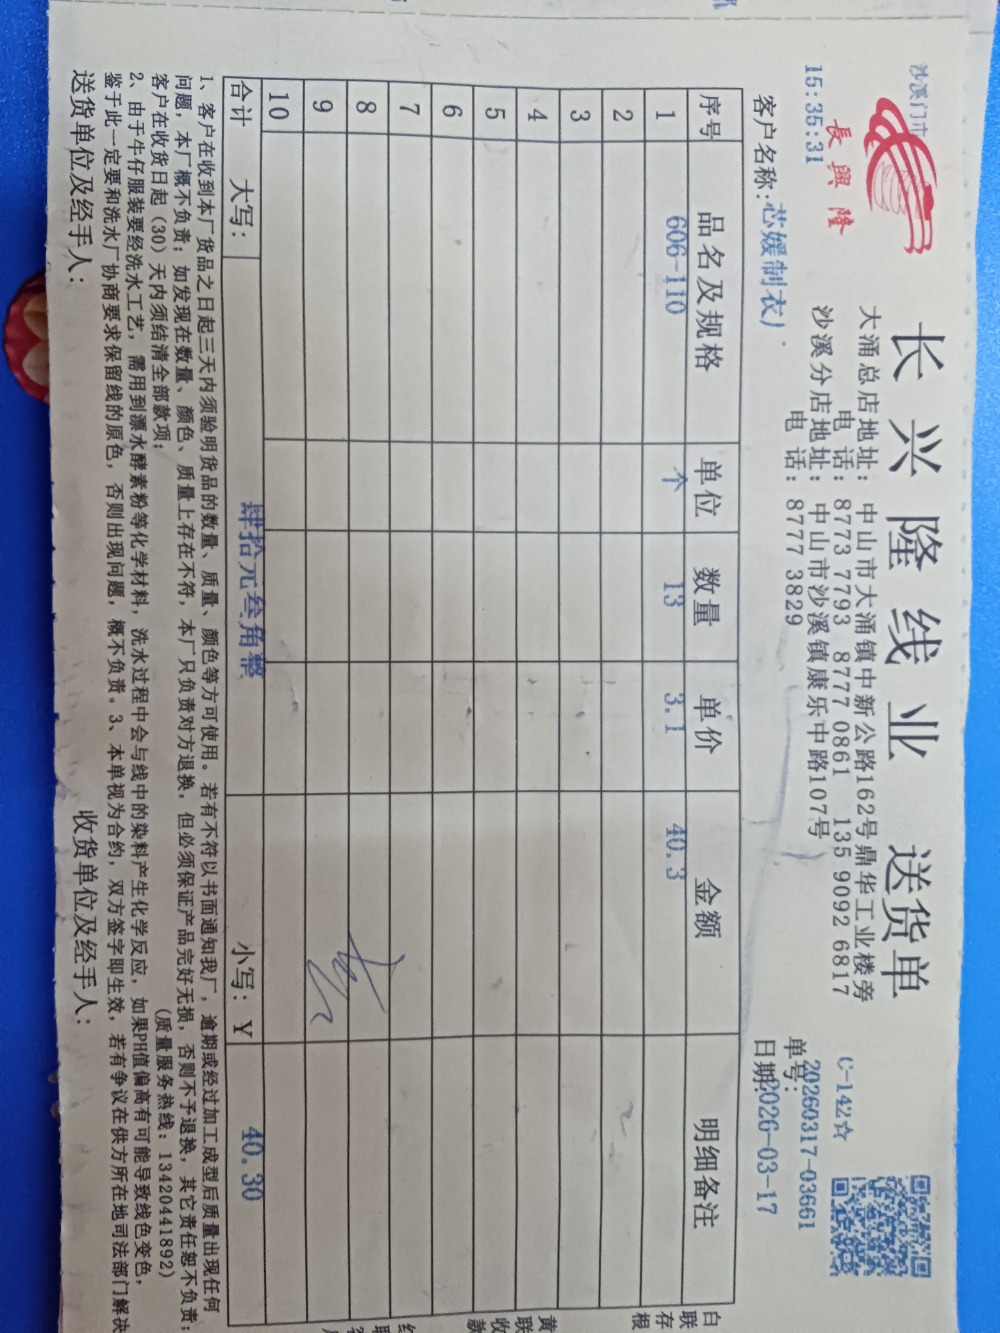 沙溪门市
長興隆
15:35:31
长兴隆线业 送货单
大涌总店地址：中山市大涌镇中新公路162号鼎华工业楼旁
电 话：8773 7793 8777 0861 135 9092 6817
沙溪分店地址：中山市沙溪镇康乐中路107号
电 话：8777 3829
C-142☆
单号：20260317-03661
客户名称：芯媛制衣厂
日期：2026-03-17
序号 品名及规格 单位 数量 单价 金额 明细备注
1 606-110 个 13 3.1 40.3
2
3
4
5
6
7
8
9
10
合计 大写： 肆拾元叁角整 小写：￥ 40.30
1、客户在收到本厂货品之日起三天内须验明货品的数量、质量、颜色等方可使用。若有不符以书面通知我厂，逾期或经过加工成型后质量出现任何
问题，本厂概不负责；如发现在数量、颜色、质量上存在不符，本厂只负责对方退换，但必须保证产品完好无损，否则不予退换，其它责任恕不负责；
客户在收货日起（30）天内须结清全部款项； （质量服务热线：13420441892）
2、由于牛仔服装要经洗水工艺，需用到漂水酵素粉等化学材料，洗水过程中会与线中的染料产生化学反应，如果PH值偏高有可能导致线色变色，
鉴于此一定要和洗水厂协商要求保留线的原色，否则出现问题，概不负责。3、本单视为合约，双方签字即生效，若有争议在供方所在地司法部门解决
送货单位及经手人： 收货单位及经手人：
白联存根
黄联
款